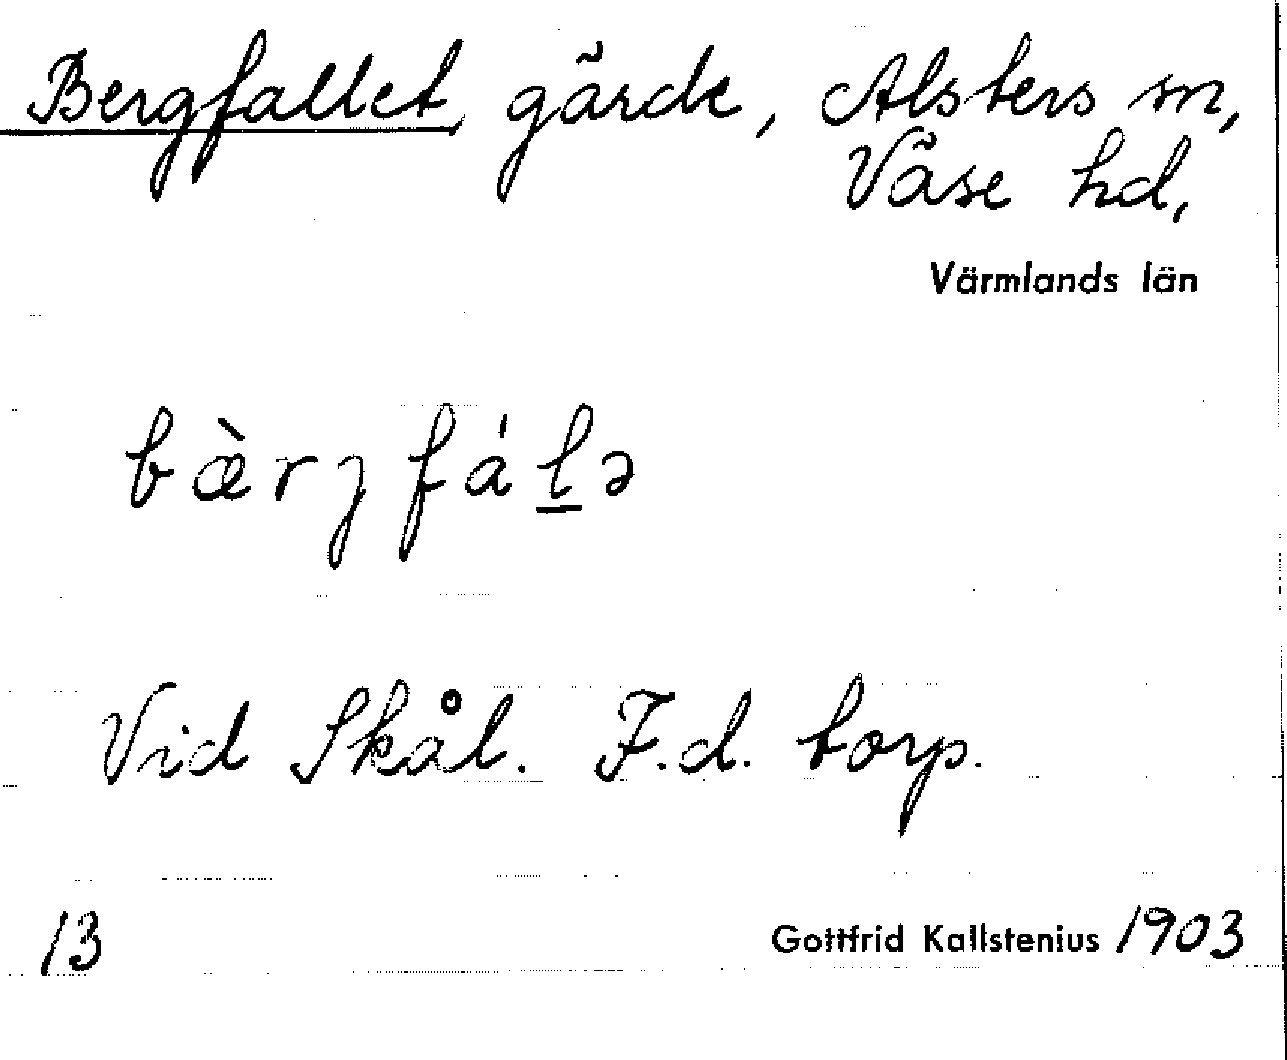 Bergfallet, gärde, Alsters sn,
Väse hd,
Värmlands län
bæ̀rȷfál̲ə
Vid Skål. F.d. torp.
13
Gottfrid Kallstenius 1903